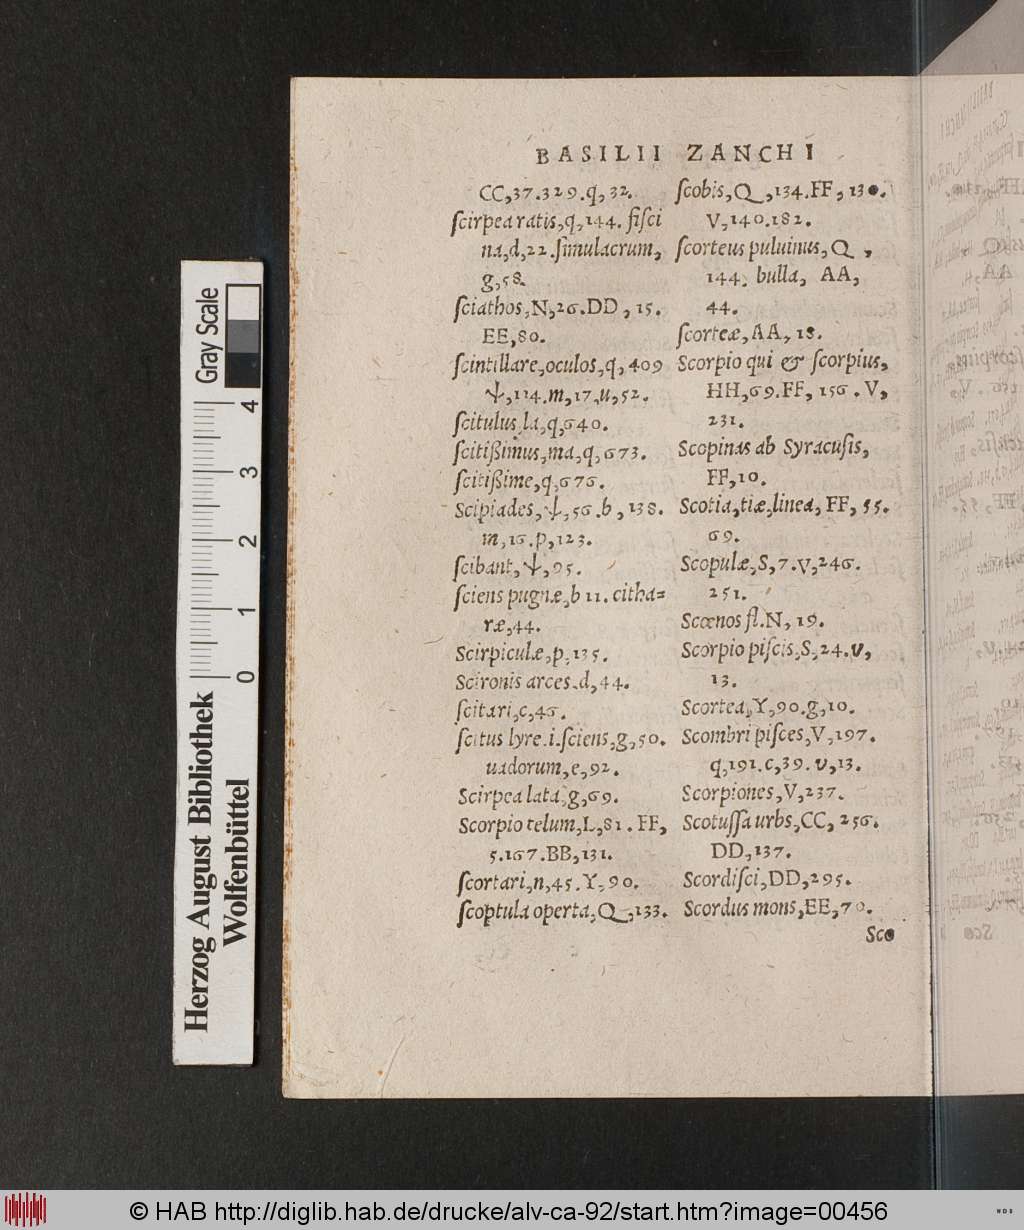 BASILII ZANCHI
CC,37.329.q,32.
ſcirpea ratis,q,144. fiſci
na,d,22.ſimulacrum,
g,58.
ſciathos,N,26.DD,15.
EE,80.
ſcintillare,oculos,q,409
Ψ,114.m,17.u,52.
ſcitulus,la,q,640.
ſcitißimus,ma,q,673.
ſcitißime,q,676.
Scipiades,Ψ,56.b,138.
m,16.p,123.
ſcibant,Ψ,95.
ſciens pugnæ,b 11. citha=
ræ,44.
Scirpiculæ,p,135.
Scironis arces.d,44.
ſcitari,c,46.
ſcitus lyre.i.ſciens,g,50.
uadorum,e,92.
Scirpea lata,g,69.
Scorpio telum,L,81.FF,
5.167.BB,131.
ſcortari,n,45.Y,90.
ſcoptula operta,Q,133.
ſcobis,Q,134.FF,130.
V,140.182.
ſcorteus puluinus,Q,
144. bulla, AA,
44.
ſcorteæ,AA,18.
Scorpio qui & ſcorpius,
HH,69.FF,156.V,
231.
Scopinas ab Syracuſis,
FF,10.
Scotia,tiæ,linea,FF,55.
69.
Scopulæ,S,7.V,246.
251.
Scœnos fl.N,19.
Scorpio piſcis,S,24.V,
13.
Scortea,Y,90.g,10.
Scombri piſces,V,197.
q,191.c,39.v,13.
Scorpiones,V,237.
Scotuſſa urbs,CC,256.
DD,137.
Scordiſci,DD,295.
Scordus mons,EE,70.
Sco
Gray Scale
0 1 2 3 4
Herzog August Bibliothek
Wolfenbüttel
© HAB http://diglib.hab.de/drucke/alv-ca-92/start.htm?image=00456
WDB